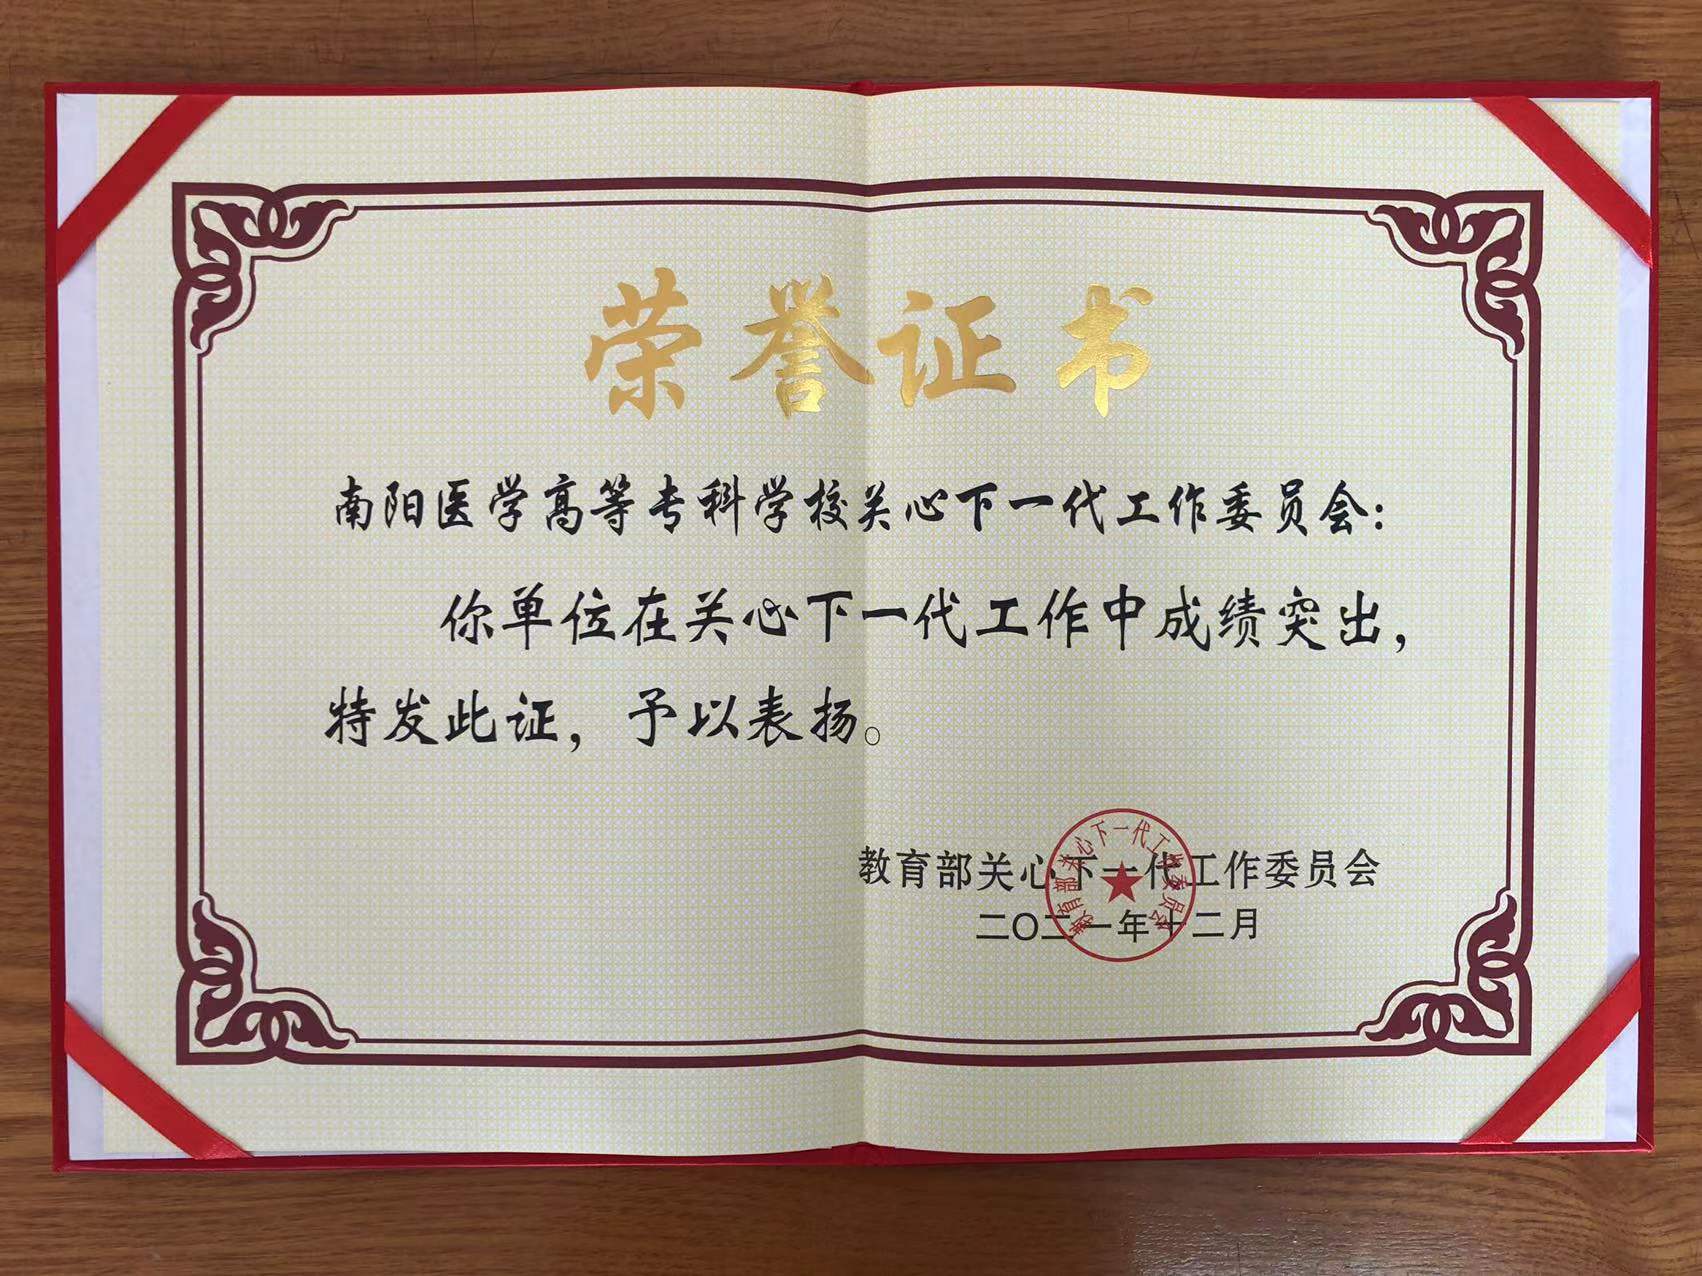 荣誉证书
南阳医学高等专科学校关心下一代工作委员会:
你单位在关心下一代工作中成绩突出,
特发此证,予以表扬。
教育部关心下一代工作委员会
二〇二一年十二月
教育部关心下一代工作委员会